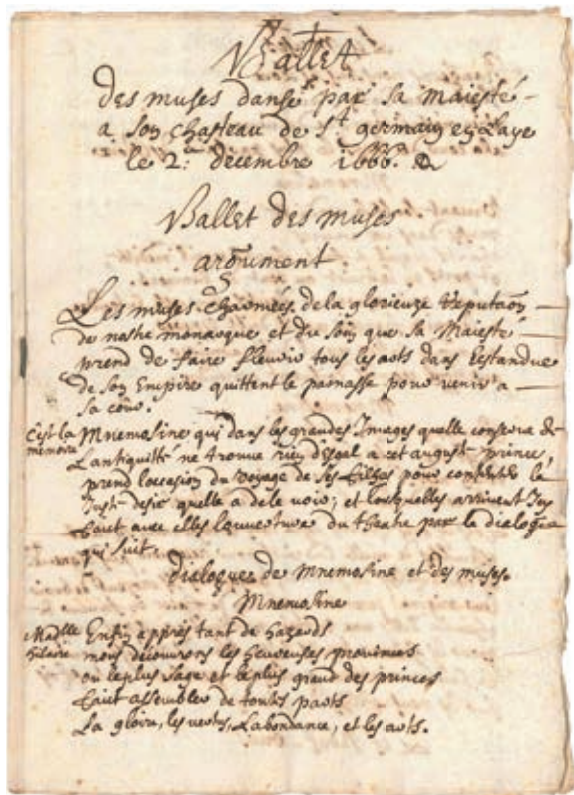 Ballet
des muses dansé par sa maiesté
a son chasteau de St germain en Laye
le 2. decembre 1666.
Ballet des muses
argument
Les muses charmées de la glorieuze reputaōn
de nostre monarque et du soin que sa Maiesté
prend de faire fleurir tous les arts dans Lestandue
de son Empire quittent le parnasse pour venir a
sa cour.
C'est la memoire
Mnemosine qui dans les grandes Images quelle conserve de
Lantiquité ne trouve rien desgal a cet august prince,
prend loccasion du voyage de ses filles pour contenter le
Just desir quelle a de le voir; et lorsquelles arrivent Icy
faict avec elles louverture du theatre par le dialogue
qui suit.
Dialogue de Mnemosine et des muses.
Mnemosine
Madlle hilaire
Enfin apprés tant de hazards
nous découvrons les heureuses provinces
ou le plus sage et le plus grand des princes
faict assembler de toutes parts
La gloire, les vertus, Labondance, et les arts.